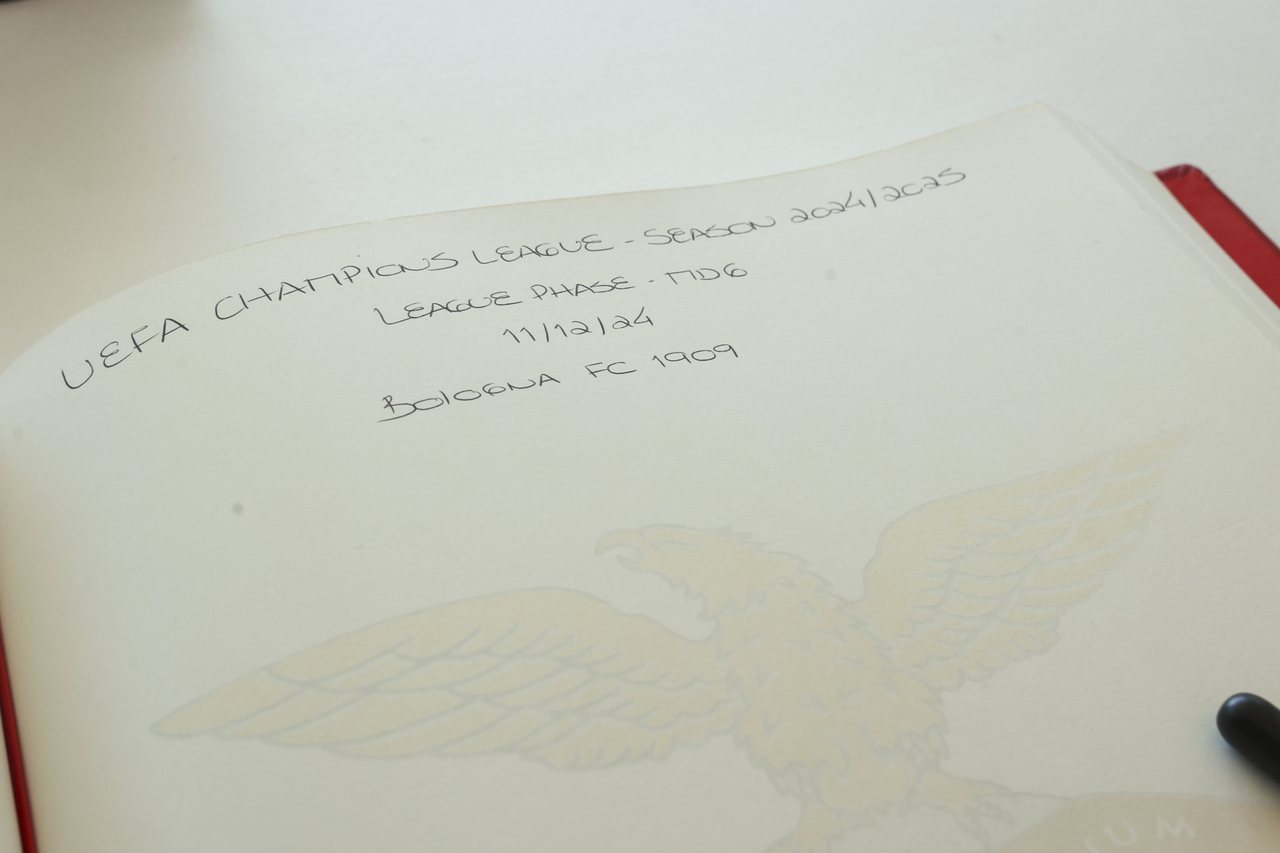 UEFA CHAMPIONS LEAGUE - SEASON 2024/2025
LEAGUE PHASE - MD6
11/12/24
BOLOGNA FC 1909
UM